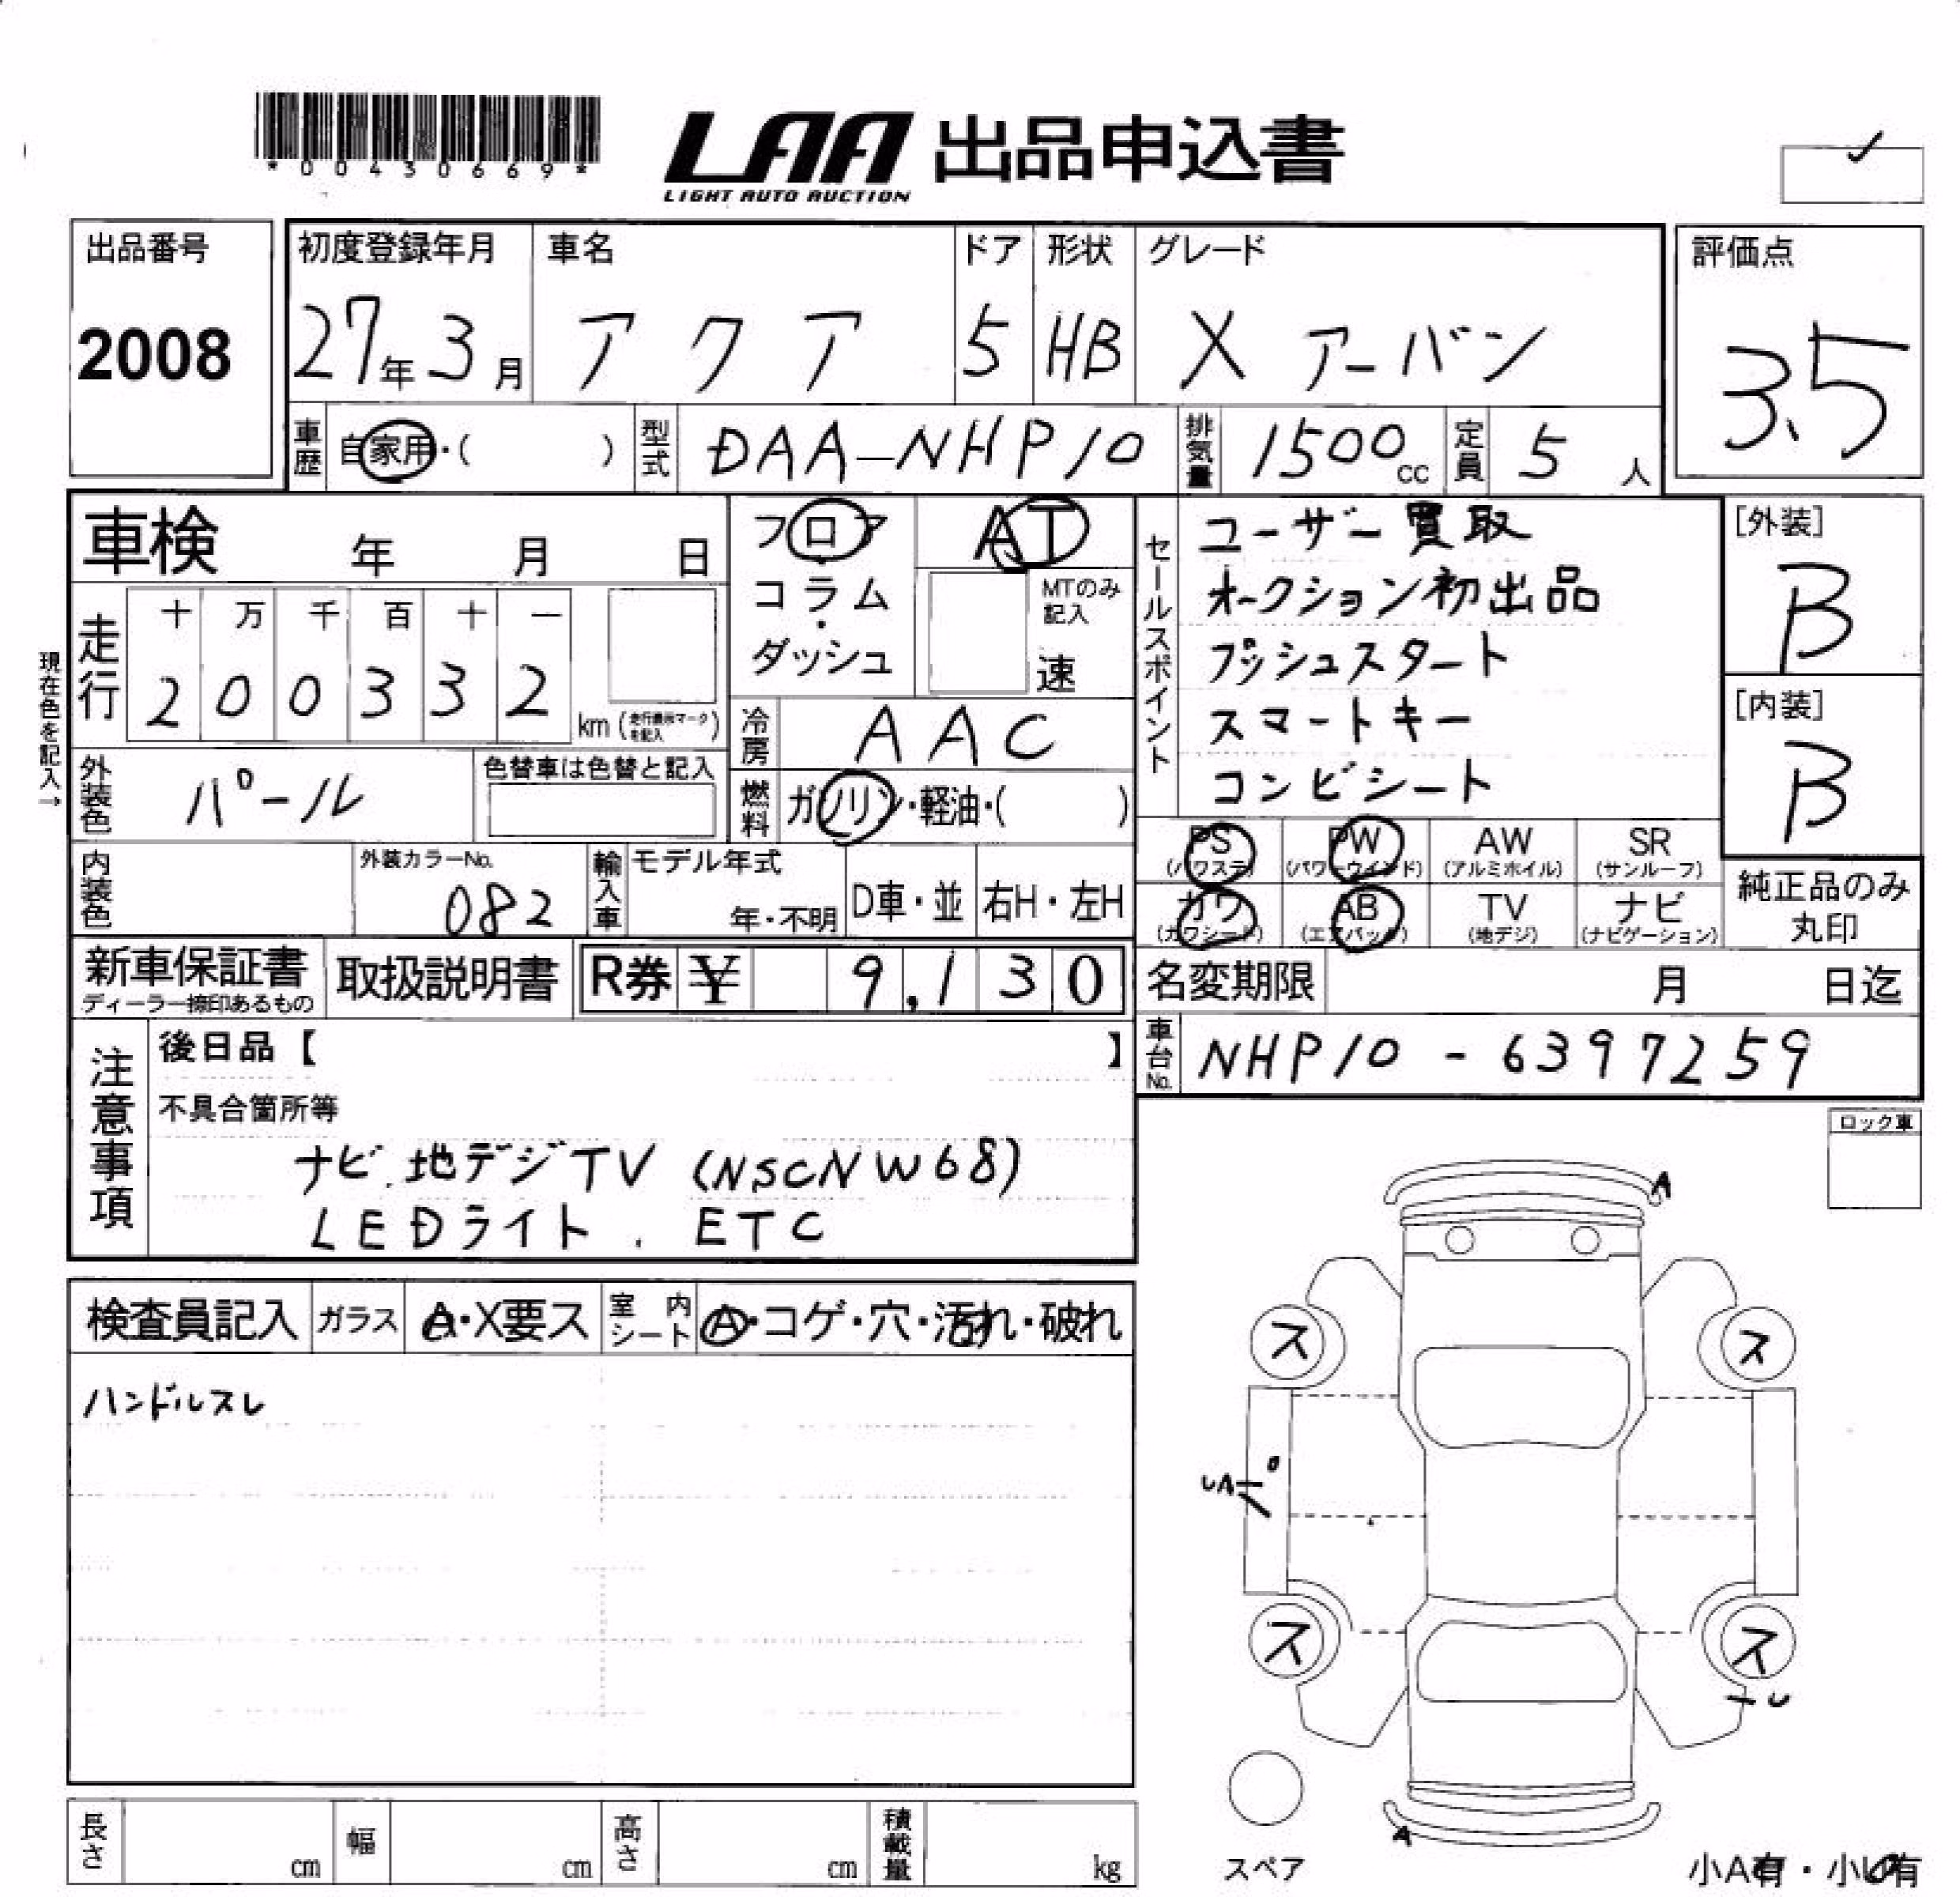 *00430669*
LAA 出品申込書
LIGHT AUTO AUCTION
出品番号
2008
初度登録年月
27年3月
車名
アクア
ドア
5
形状
HB
グレード
X アーバン
評価点
3.5
車歴 自家用・( )
型式 DAA-NHP10
排気量 1500cc
定員 5人
車検 年 月 日
現在色を記入→
走行
十 万 千 百 十 一
2 0 0 3 3 2
km(走行表示マークを記入)
フロア・コラム・ダッシュ
AT
MTのみ記入
速
冷房 AAC
燃料 ガソリン・軽油・( )
外装色 パール
色替車は色替と記入
内装色
外装カラーNo.
082
輸入車
モデル年式
年・不明
D車・並
右H・左H
セールスポイント
ユーザー買取
オークション初出品
プッシュスタート
スマートキー
コンビシート
[外装]
B
[内装]
B
PS (パワステ)
PW (パワーウインド)
AW (アルミホイル)
SR (サンルーフ)
カワ (カワシート)
AB (エアバック)
TV (地デジ)
ナビ (ナビゲーション)
純正品のみ丸印
新車保証書
ディーラー捺印あるもの
取扱説明書
R券 ¥ 9,130
名変期限 月 日迄
車台No. NHP10-6397259
注意事項
後日品【 】
不具合箇所等
ナビ.地デジTV (NSCNW68)
LEDライト . ETC
ロック車
検査員記入
ガラス A・X要ス
室内シート A・コゲ・穴・汚れ・破れ
ハンドルスレ
A
ス
ス
UA
ス
ス
A
スペア
小A有・小U有
長さ cm
幅 cm
高さ cm
積載量 kg